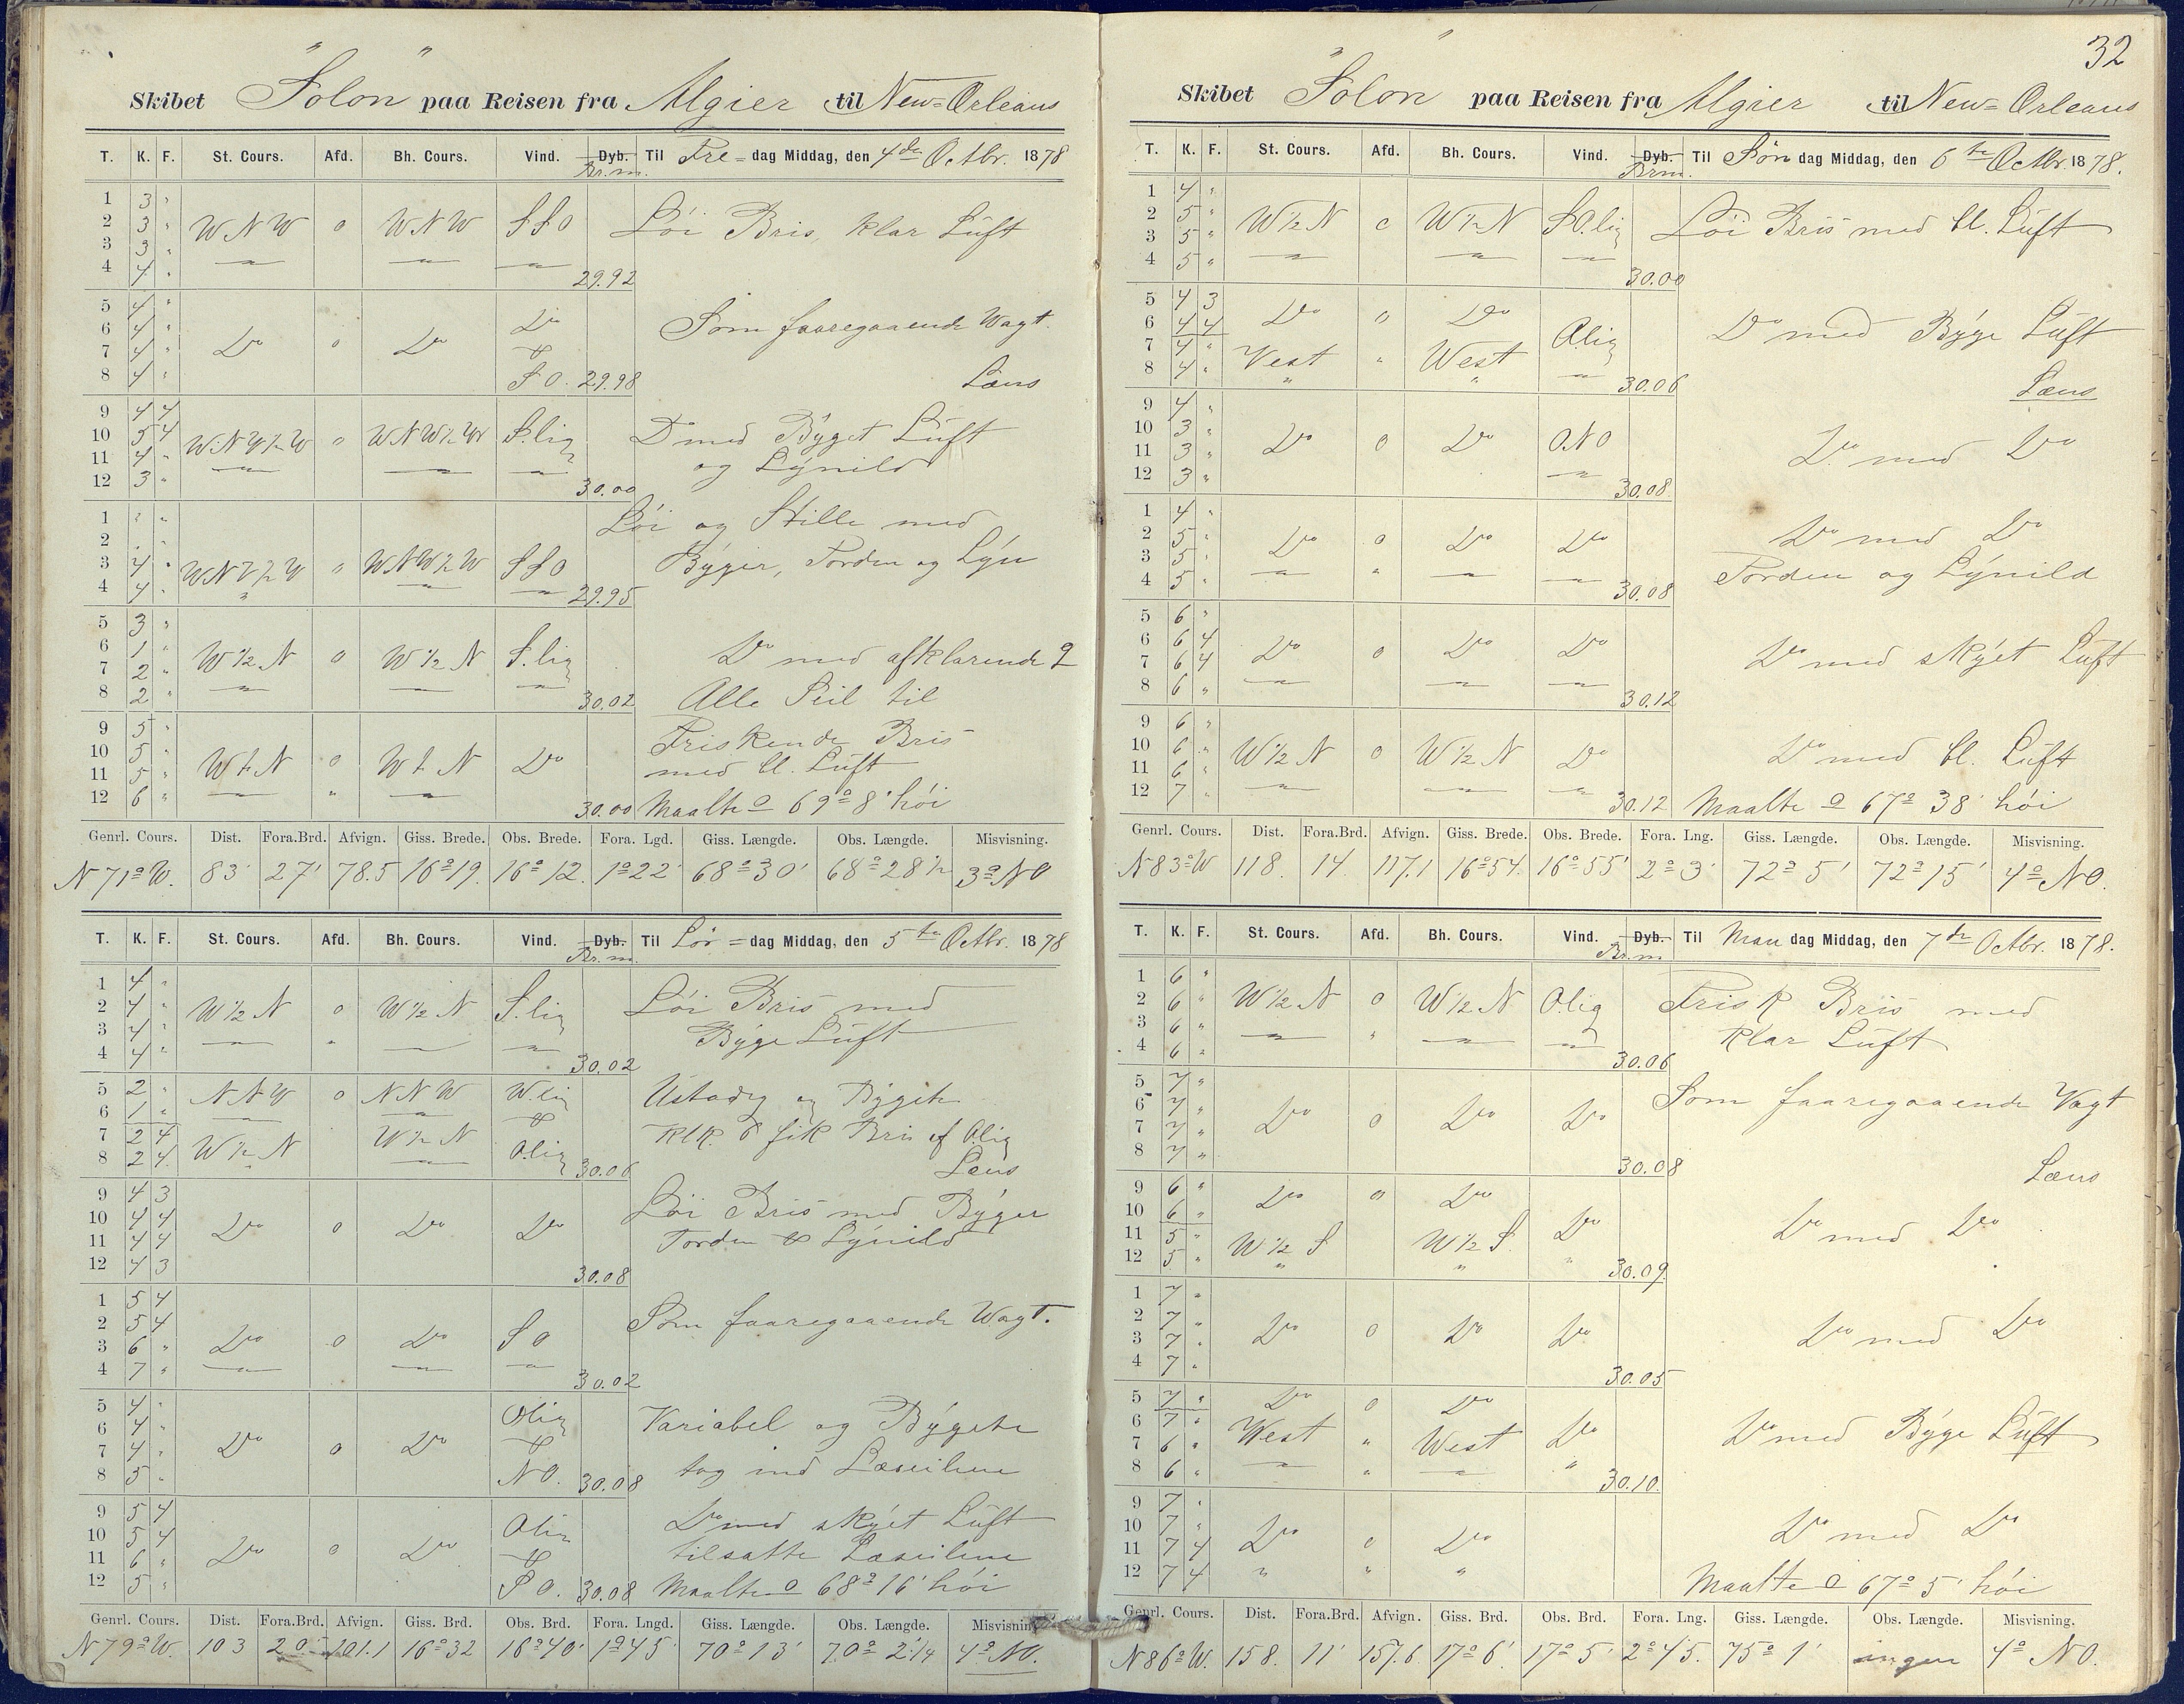 "Solon"
Skibet Solon paa Reisen fra Algier til New-Orleans
T. K. F. St. Cours. Afd. Bh. Cours. Vind. Dyb. Br.m. Til Fre-dag Middag, den 4de Octbr. 1878
1 3 "
2 3 " WNW 0 WNW SSO Löi Bris, klar Luft
3 3 "
4 4 " 29.92
5 4 "
6 4 " Do 0 Do Do Som faaregaaende Wagt.
7 4 " &
8 4 " SO. 29.98 Læns
9 4 4
10 5 4 WNW½W 0 WNW½W S.lig Do med Byget Luft
11 4 " og Lynild
12 3 " 30.00
1 " " Löi og Stille med
2 " "
3 4 " WNW½W 0 WNW½W SSO Byger, Torden og Lyn
4 4 " 29.95
5 3 "
6 1 " W½N 0 W½N S.lig Do med afklarende
7 2 "
8 2 " 30.02 Alle Seil til
9 5 " Friskende Bris
10 5 " WtN 0 WtN Do med bl. Luft
11 5 "
12 6 " 30.00 Maalte 69° 8' höi
Genrl. Cours. Dist. Fora.Brd. Afvign. Giss. Brede. Obs. Brede. Fora. Lgd. Giss. Længde. Obs. Længde. Misvisning.
N 71° W. 83' 27' 78.5 16°19. 16° 12. 1°22' 68°30' 68°28½ 3° NO
T. K. F. St. Cours. Afd. Bh. Cours. Vind. Dyb. Br.m. Til Lör-dag Middag, den 5te Octbr. 1878
1 4 "
2 4 " W½N 0 W½N S.lig Löi Bris med
3 4 " Byge Luft
4 4 " 30.02
5 2 " NNW 0 NNW W.lig Ustadig og Bygete
6 1 " &
7 2 4 W½N W½N Klk. 6 fik Bris af O.lig
8 2 4 O.lig 30.06 Læns
9 4 3
10 4 4 Do 0 Do Do Löi Bris med Byger
11 4 4 Torden & Lynild
12 4 3 30.08
1 5 4
2 5 4 Som faaregaaende Wagt.
3 6 " Do 0 Do SO
4 7 " 30.02
5 4 " Olig
6 4 " Variabel og Bygete
7 4 " Do 0 Do &
8 5 " NO. 30.08 tog ind Læseilene
9 5 4
10 5 4 Olig Do med skyet Luft
11 6 " Do 0 Do & tilsatte Læseilene
12 5 " SO. 30.08 Maalte 68° 16' höi
Genrl. Cours. Dist. Fora.Brd. Afvign. Giss. Brd. Obs. Brd. Fora. Lngd. Giss. Længde. Obs. Længde. Misvisning
N 79° W. 103 20 101.1 16°32 16°40' 1°45' 70° 13' 70° 2'¼ 4° NO.
32
Skibet "Solon" paa Reisen fra Algier til New-Orleans
T. K. F. St. Cours. Afd. Bh. Cours. Vind. Dyb. Brm. Til Sön dag Middag, den 6te Octbr. 1878.
1 4 "
2 5 " W½N 0 W½N SO.lig Löi Bris med bl. Luft
3 5 "
4 5 " 30.00
5 4 3
6 4 4 Do 0 Do O.lig Do med Byge Luft
7 4 "
8 4 " Vest " West 30.06 Læns
9 4 "
10 3 " Do 0 Do ONO Do med Do
11 3 "
12 3 " 30.08
1 4 "
2 5 " Do 0 Do Do Do med Do
3 5 "
4 5 " 30.08 Torden og Lynild
5 6 "
6 6 4 Do 0 Do Do Do med skyet Luft
7 6 4
8 6 " 30.12
9 6 "
10 6 " W½N 0 W½N Do Do med bl. Luft
11 6 "
12 7 " 30.12 Maalte 67° 38' höi
Genrl. Cours. Dist. Fora.Brd. Afvign. Giss. Brede. Obs. Brede. Fora. Lng. Giss. Længde. Obs. Længde. Misvisning.
N 83° W 118. 14. 117.1 16°54. 16°55' 2° 3' 72° 5' 72° 15' 4° NO.
T. K. F. St. Cours. Afd. Bh. Cours. Vind. Dyb. Br.m Til Man dag Middag, den 7de Octbr. 1878.
1 6 "
2 6 " W½N 0 W½N O.lig Frisk Bris med
3 6 " klar Luft
4 6 " 30.06
5 7 "
6 7 " Som faaregaaende Vagt
7 7 " Do 0 Do Do
8 7 " 30.08 Læns
9 6 " Do 0 Do
10 6 " Do Do med Do
11 5 " W½S W½S
12 5 " 30.09
1 7 "
2 7 " Do 0 Do Do Do med Do
3 7 "
4 7 " 30.05
5 7 " Do 0 Do
6 7 " West " West Do Do med Byge Luft
7 6 "
8 6 " 30.10.
9 7 "
10 7 " Do 0 Do Do med Do
11 7 4
12 7 4 Maalte 67° 5' höi
Genrl. Cours. Dist. Fora.Brd. Afvign. Giss. Brd. Obs. Brd. Fora. Lng. Giss. Længde. Obs. Længde. Misvisning.
N 86° W. 158. 11' 157.6 17° 6' 17° 5' 2° 45. 75° 1' ingen 4° NO.